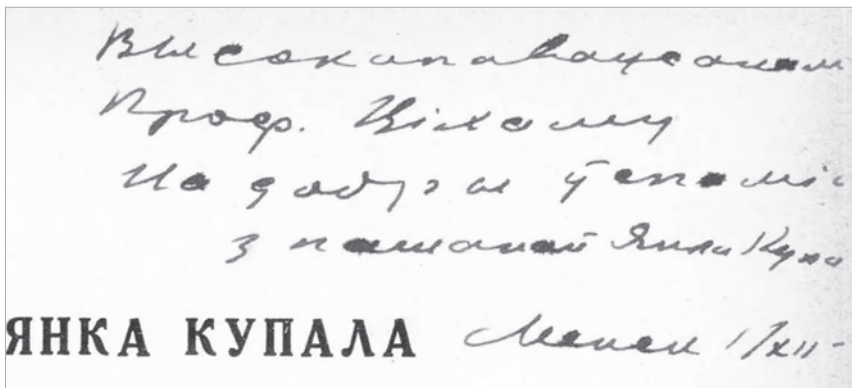 Высокапаважанам
Проф. Ціхаму
На добры ўспамі
з пашанай Янка Купа
ЯНКА КУПАЛА Менск 1/XII-